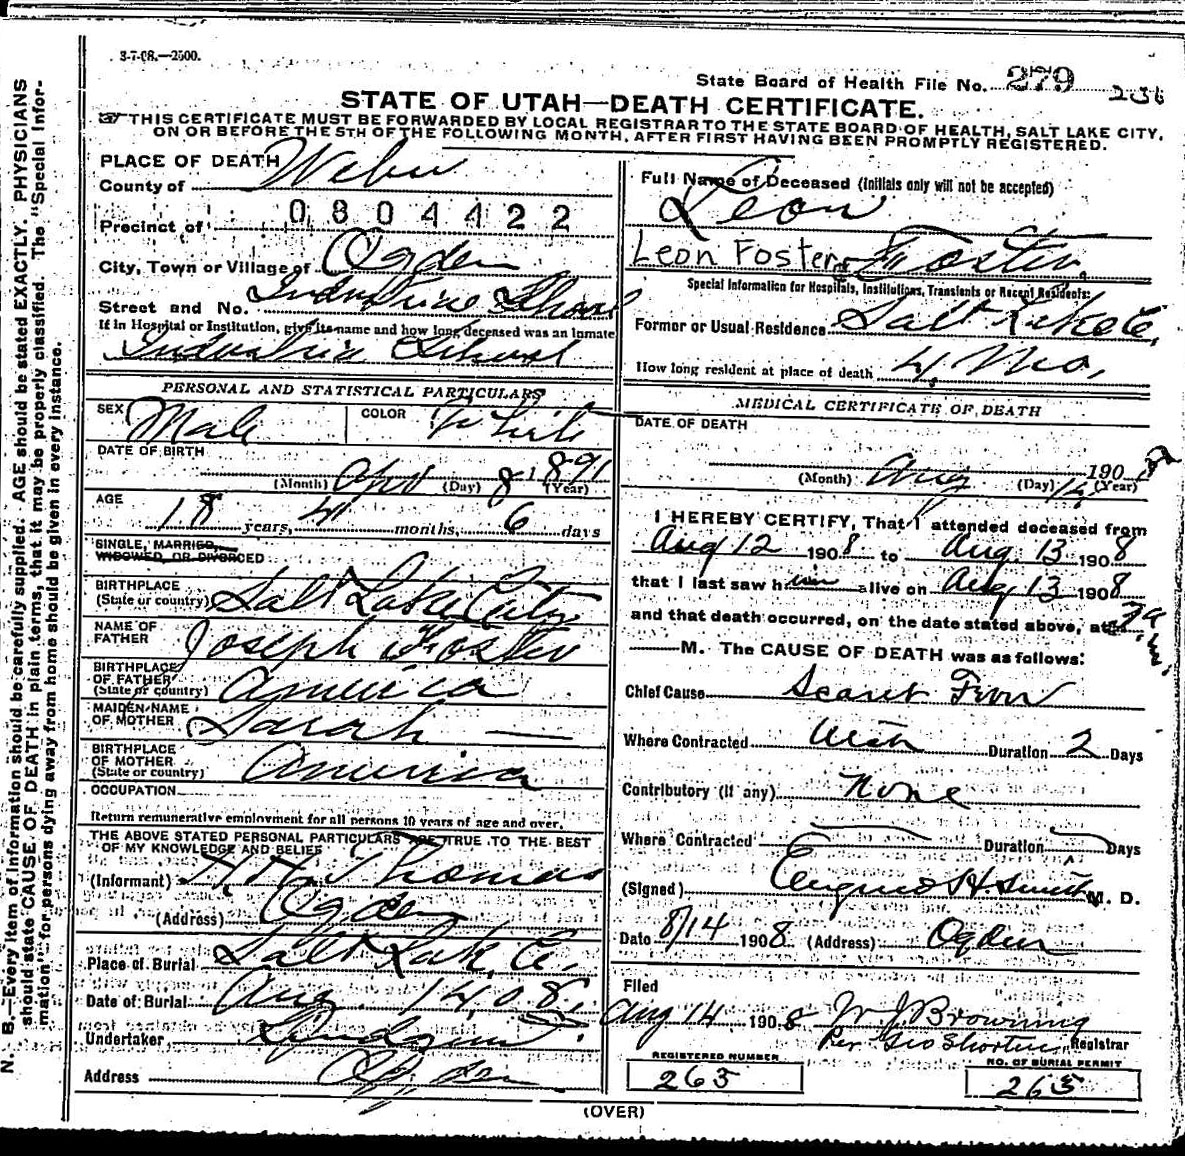 3-7-08.—2500.
State Board of Health File No. 279 236
STATE OF UTAH—DEATH CERTIFICATE.
THIS CERTIFICATE MUST BE FORWARDED BY LOCAL REGISTRAR TO THE STATE BOARD OF HEALTH, SALT LAKE CITY,
ON OR BEFORE THE 5TH OF THE FOLLOWING MONTH, AFTER FIRST HAVING BEEN PROMPTLY REGISTERED.
N. B.—Every item of information should be carefully supplied. AGE should be stated EXACTLY. PHYSICIANS
should state CAUSE OF DEATH in plain terms, that it may be properly classified. The "Special Infor-
mation" for persons dying away from home should be given in every instance.
PLACE OF DEATH
County of Weber
0804422
Precinct of
City, Town or Village of Ogden
Street and No. Industrial School
If in Hospital or Institution, give its name and how long deceased was an inmate
Industrial School
PERSONAL AND STATISTICAL PARTICULARS
SEX Male COLOR White
DATE OF BIRTH
(Month) Apr (Day) 8 1891 (Year)
AGE
18 years, 4 months, 6 days
SINGLE, MARRIED,
WIDOWED, OR DIVORCED
BIRTHPLACE
(State or country) Salt Lake City
NAME OF
FATHER Joseph Foster
BIRTHPLACE
OF FATHER
(State or country) America
MAIDEN NAME
OF MOTHER Sarah —
BIRTHPLACE
OF MOTHER
(State or country) America
OCCUPATION
Return remunerative employment for all persons 10 years of age and over.
THE ABOVE STATED PERSONAL PARTICULARS ARE TRUE TO THE BEST
OF MY KNOWLEDGE AND BELIEF
(Informant) H. H. Thomas
(Address) Ogden
Place of Burial Salt Lake C.
Date of Burial Aug. 14, 08.
Undertaker
Address Ogden
Full Name of Deceased (Initials only will not be accepted)
Leon
Leon Foster Foster
Special Information for Hospitals, Institutions, Transients or Recent Residents:
Former or Usual Residence Salt Lake C.
How long resident at place of death 4 Mo.
MEDICAL CERTIFICATE OF DEATH
DATE OF DEATH
(Month) Aug (Day) 14 1908 (Year)
I HEREBY CERTIFY, That I attended deceased from
Aug 12 1908 to Aug. 13 1908
that I last saw him alive on Aug 13 1908
and that death occurred, on the date stated above, at
M. The CAUSE OF DEATH was as follows:
Chief Cause Scarlet Fever
Where Contracted Utah Duration 2 Days
Contributory (if any) None
Where Contracted Duration Days
(Signed) H Smith M. D.
Date 8/14 1908 (Address) Ogden
Filed
Aug 14 1908 W J Browning
Per Geo Shorten Registrar
REGISTERED NUMBER
263
NO. OF BURIAL PERMIT
263
(OVER)